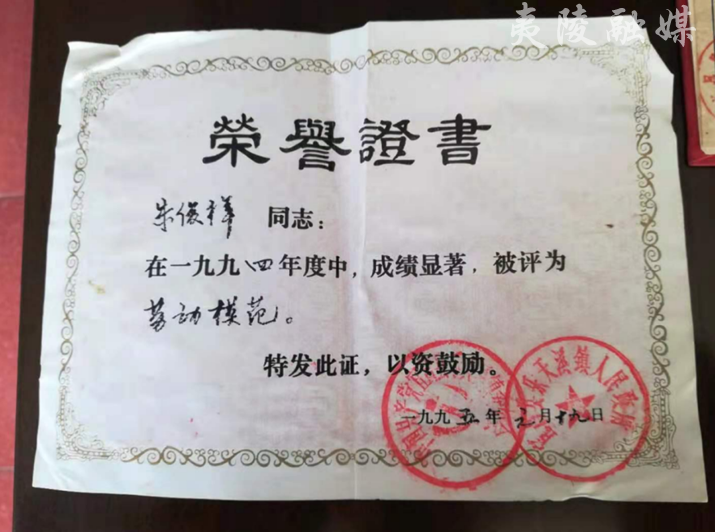 夷陵融媒
榮譽證書
朱俊祥 同志：
在一九九四年度中，成绩显著，被评为
劳动模范。
特发此证，以资鼓励。
一九九五年元月十九日